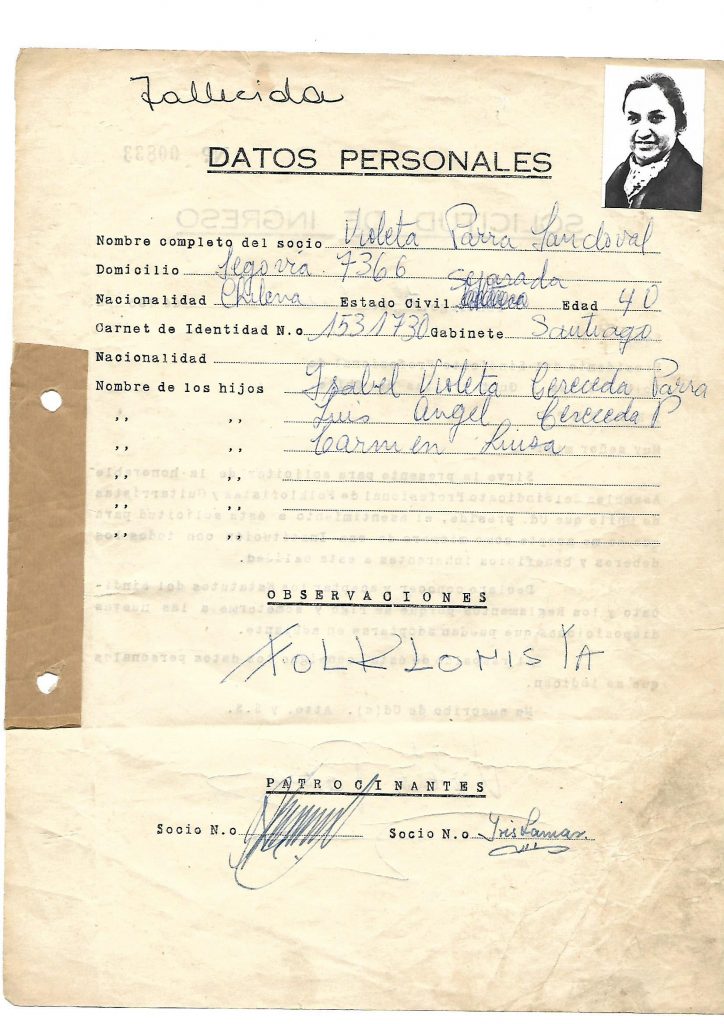 Fallecida
DATOS PERSONALES
Nombre completo del socio Violeta Parra Sandoval
Domicilio Segovia 7366
Nacionalidad Chilena Estado Civil separada Edad 40
Carnet de Identidad N.o 1531730 Gabinete Santiago
Nacionalidad
Nombre de los hijos Isabel Violeta Cereceda Parra
,, ,, Luis Angel Cereceda P
,, ,, Carmen Luisa
,, ,,
,, ,,
,, ,,
OBSERVACIONES
FOLKLORISTA
PATROCINANTES
Socio N.o Socio N.o